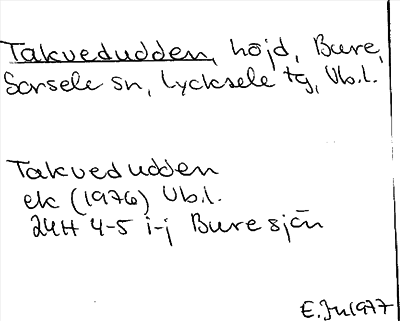 Takvedudden, höjd, Bure,
Sorsele sn, Lycksele tg, Vb.l.
Takvedudden
ek (1976) Vb.l.
24H 4-5 i-j Buresjön
E.Jn 1977